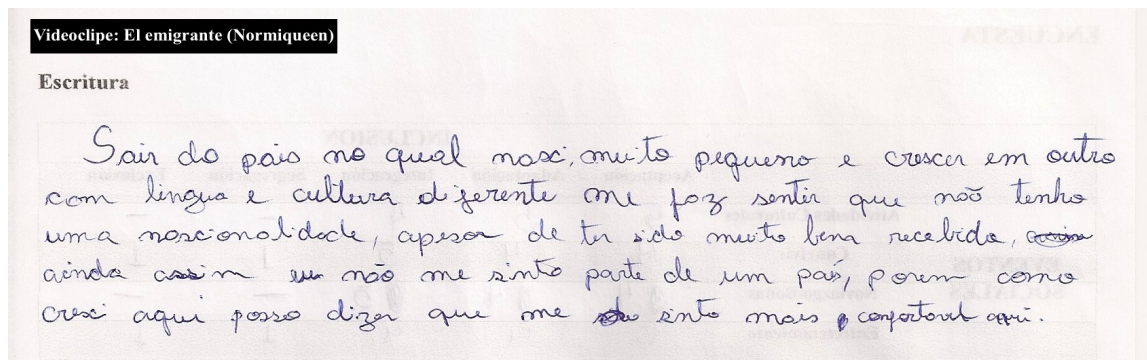 Videoclipe: El emigrante (Normiqueen)
Escritura
Sair do pais no qual nasci, muito pequeno e crescer em outro
com lingua e cultura diferente me faz sentir que não tenho
uma nascionalidade, apesar de ter sido muito bem recebida,
ainda assim eu não me sinto parte de um pas, porem como
cresci aqui posso dizer que me sinto mais confortavel aqui.
ENCUESTA
INCLUSION
EVENTOS
SOCIALES